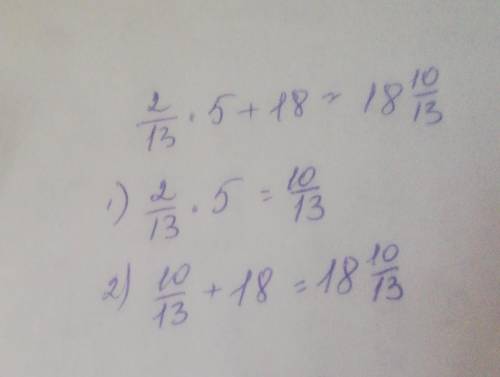 2/13 · 5 + 18 = 18 10/13
1) 2/13 · 5 = 10/13
2) 10/13 + 18 = 18 10/13